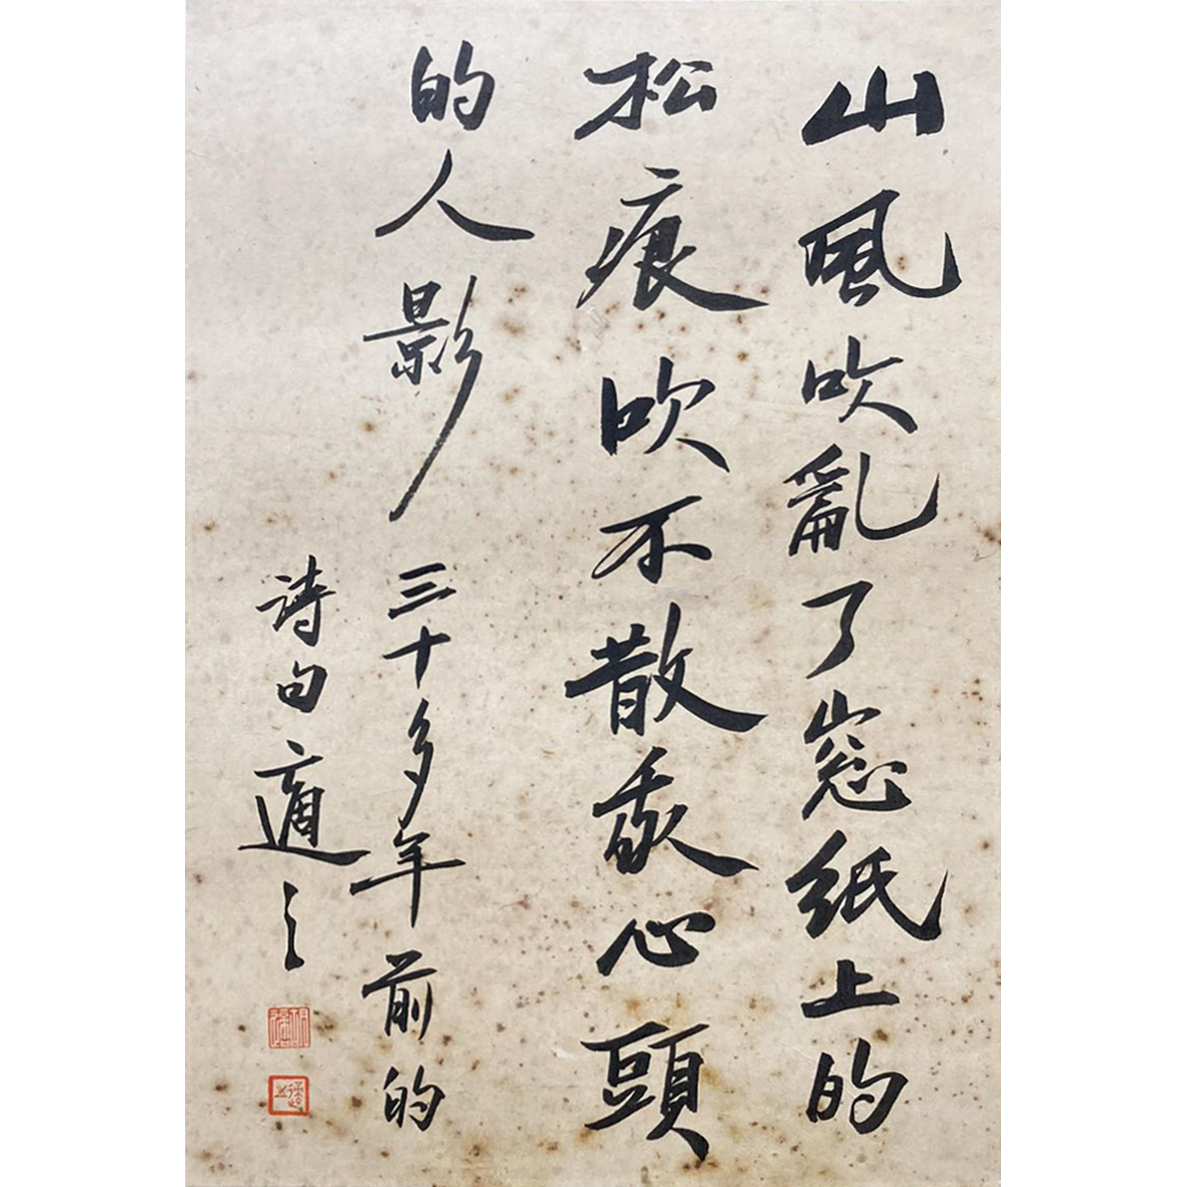 山風吹亂了窓紙上的
松痕吹不散我心頭
的人影 三十多年前的
詩句 適之
胡適
適之